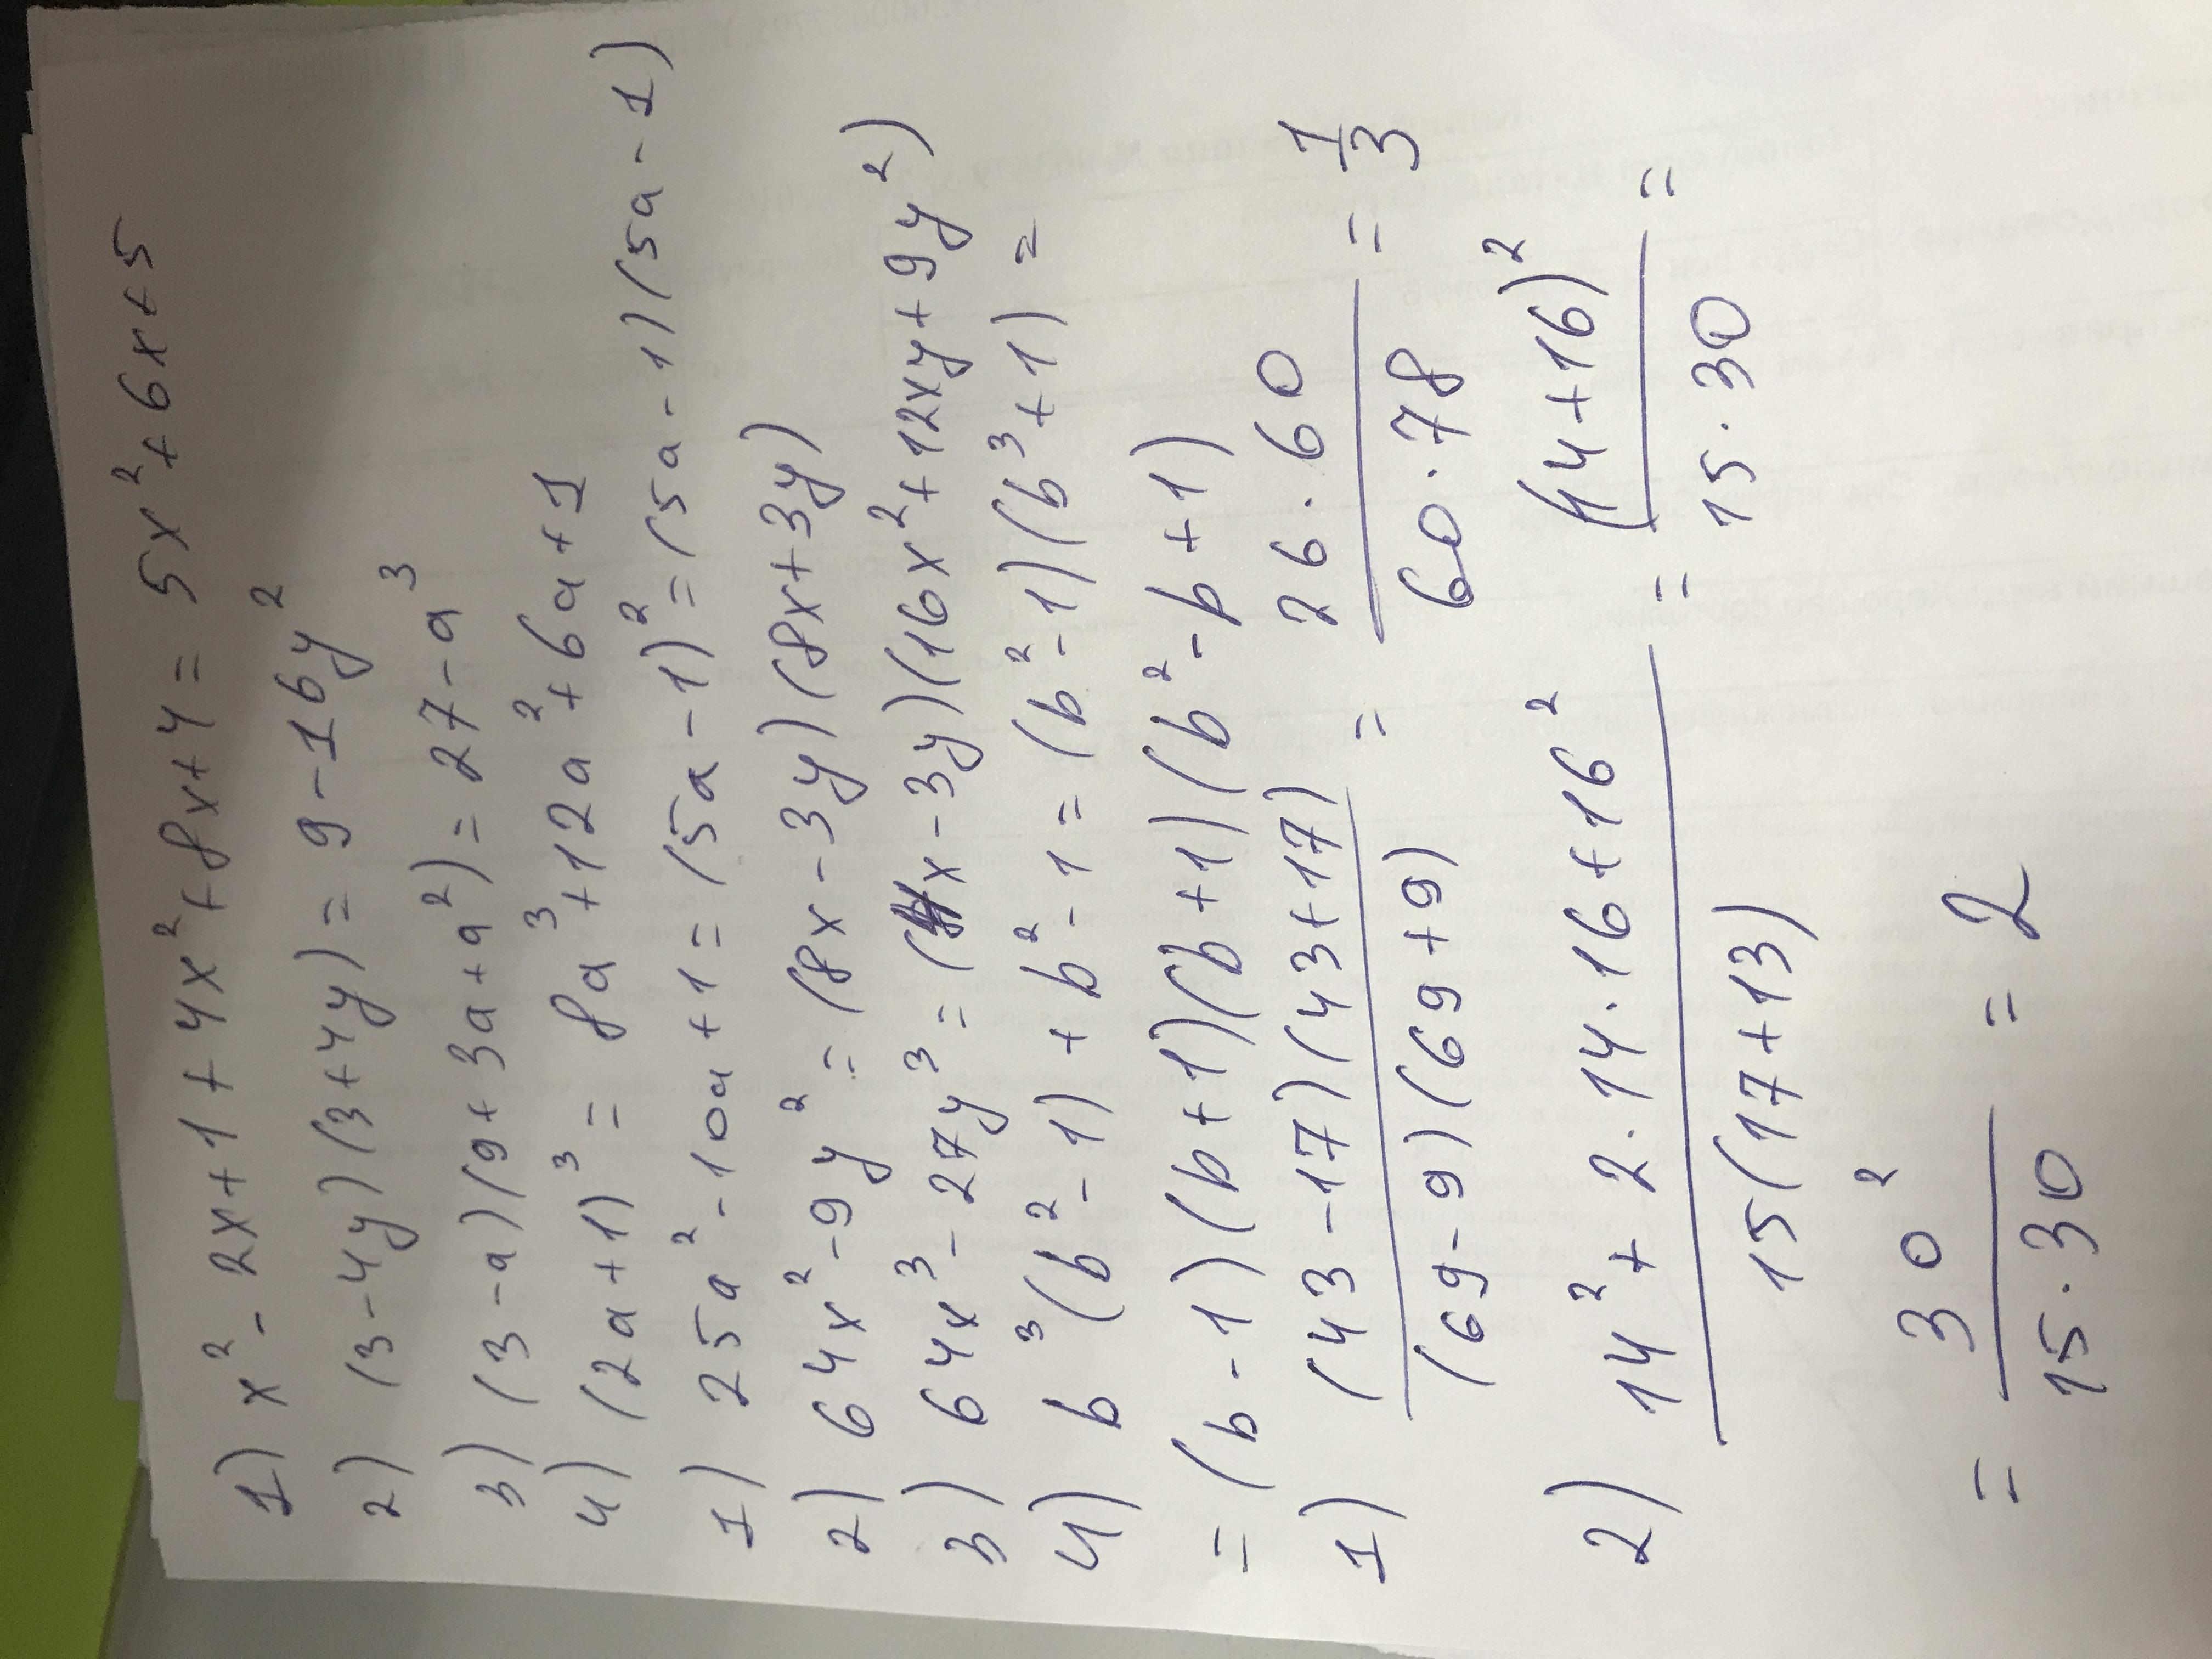 1) x² - 2x+1 + 4x² + 8x+4 = 5x² + 6x+5
2) (3-4y)(3+4y) = 9-16y²
3) (3-a)(9+3a+a²) = 27-a³
4) (2a+1)³ = 8a³+12a²+6a+1
1) 25a² - 10a+1 = (5a-1)² = (5a-1)(5a-1)
2) 64x² - 9y² = (8x-3y)(8x+3y)
3) 64x³ - 27y³ = (4x-3y)(16x²+12xy+9y²)
4) b³(b²-1) + b²-1 = (b²-1)(b³+1) =
= (b-1)(b+1)(b+1)(b²-b+1)
1) (43-17)(43+17) / (69-9)(69+9) = 26·60 / 60·78 = 1/3
2) 14² + 2·14·16+16² / 15(17+13) = (14+16)² / 15·30 =
= 30² / 15·30 = 2